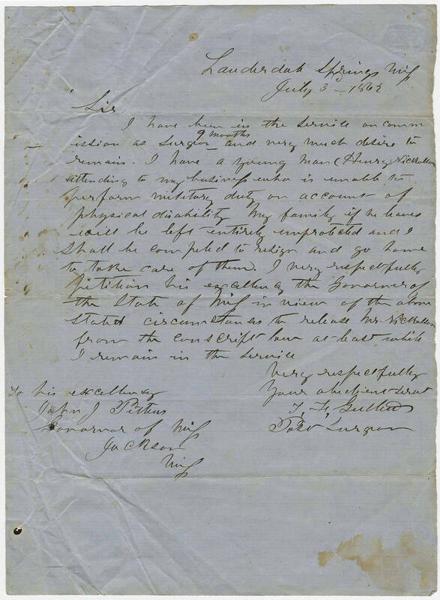 Lauderdale Springs Miss
July 3 - 1862
Sir
I have been in the service on comm
ission as Surgeon 9 months and very much desire to
remain. I have a young man (Henry McMullen
attending to my business who is unable to
perform military duty on account of
physical disability My family if he leaves
will be left entirely unprotected and I
shall be compeled to resign and go home
to take care of them. I very respectfully
petition his excellency the Governor of
the State of Miss in view of the above
stated circumstances to release Mr. McMullen
from the conscript law at least while
I remain in the service
Very respectfully
Your obedient Servt
Post Surgeon
To his excellency
John J Pettus
Governor of Miss
Jackson
Miss